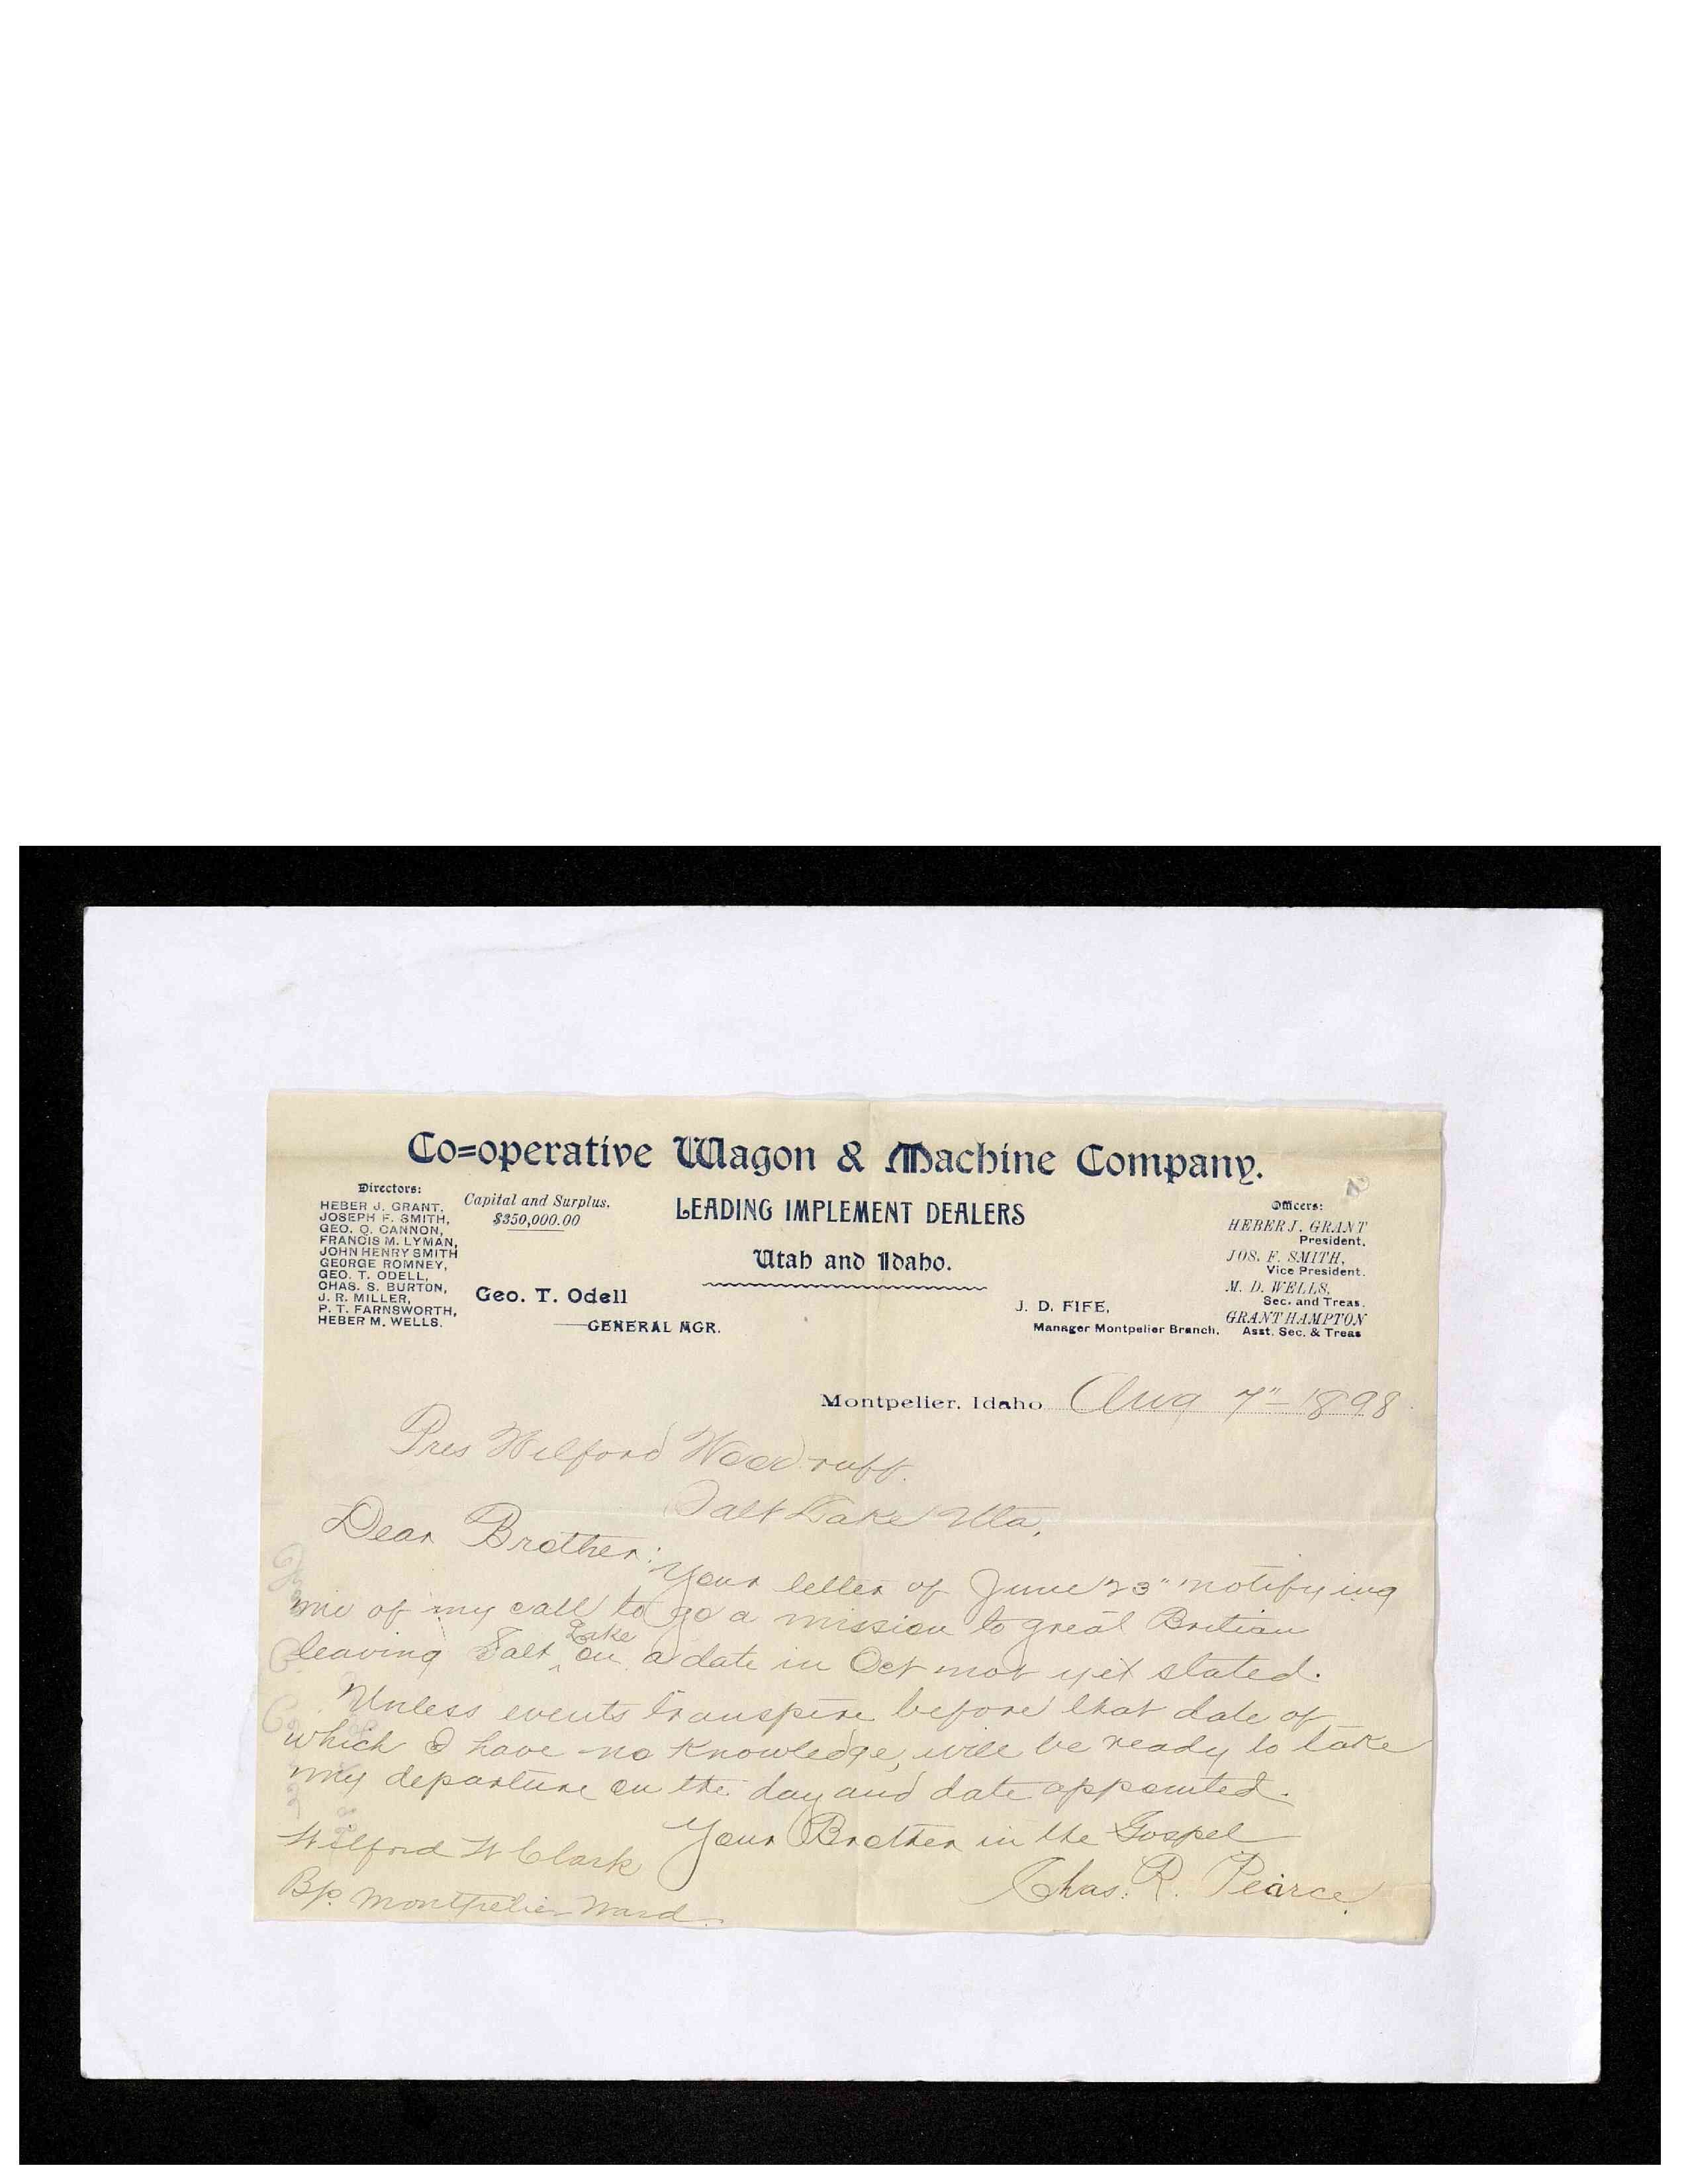 Co=operative Wagon & Machine Company.
Directors:
HEBER J. GRANT,
JOSEPH F. SMITH,
GEO. Q. CANNON,
FRANCIS M. LYMAN,
JOHN HENRY SMITH
GEORGE ROMNEY,
GEO. T. ODELL,
CHAS. S. BURTON,
J. R. MILLER,
P. T. FARNSWORTH,
HEBER M. WELLS.
Capital and Surplus,
$350,000.00
Geo. T. Odell
GENERAL MGR.
LEADING IMPLEMENT DEALERS
Utah and Idaho.
J. D. FIFE,
Manager Montpelier Branch.
Officers:
HEBER J. GRANT
President.
JOS. F. SMITH,
Vice President.
M. D. WELLS,
Sec. and Treas.
GRANT HAMPTON
Asst. Sec. & Treas
Montpelier, Idaho Aug 7" – 1898
Pres Wilford Woodruff.
Salt Lake Uta,
Dear Brother:
Your letter of June 23" notifying
me of my call to go a mission to great Britian
leaving Salt Lake on a date in Oct not yet stated.
Unless events transpire before that date of
which I have no knowledge, will be ready to take
my departure on the day and date appointed.
Your Brother in the Gospel
Chas. R. Pearce
Wilford W Clark
Bp. Montpelier Ward.